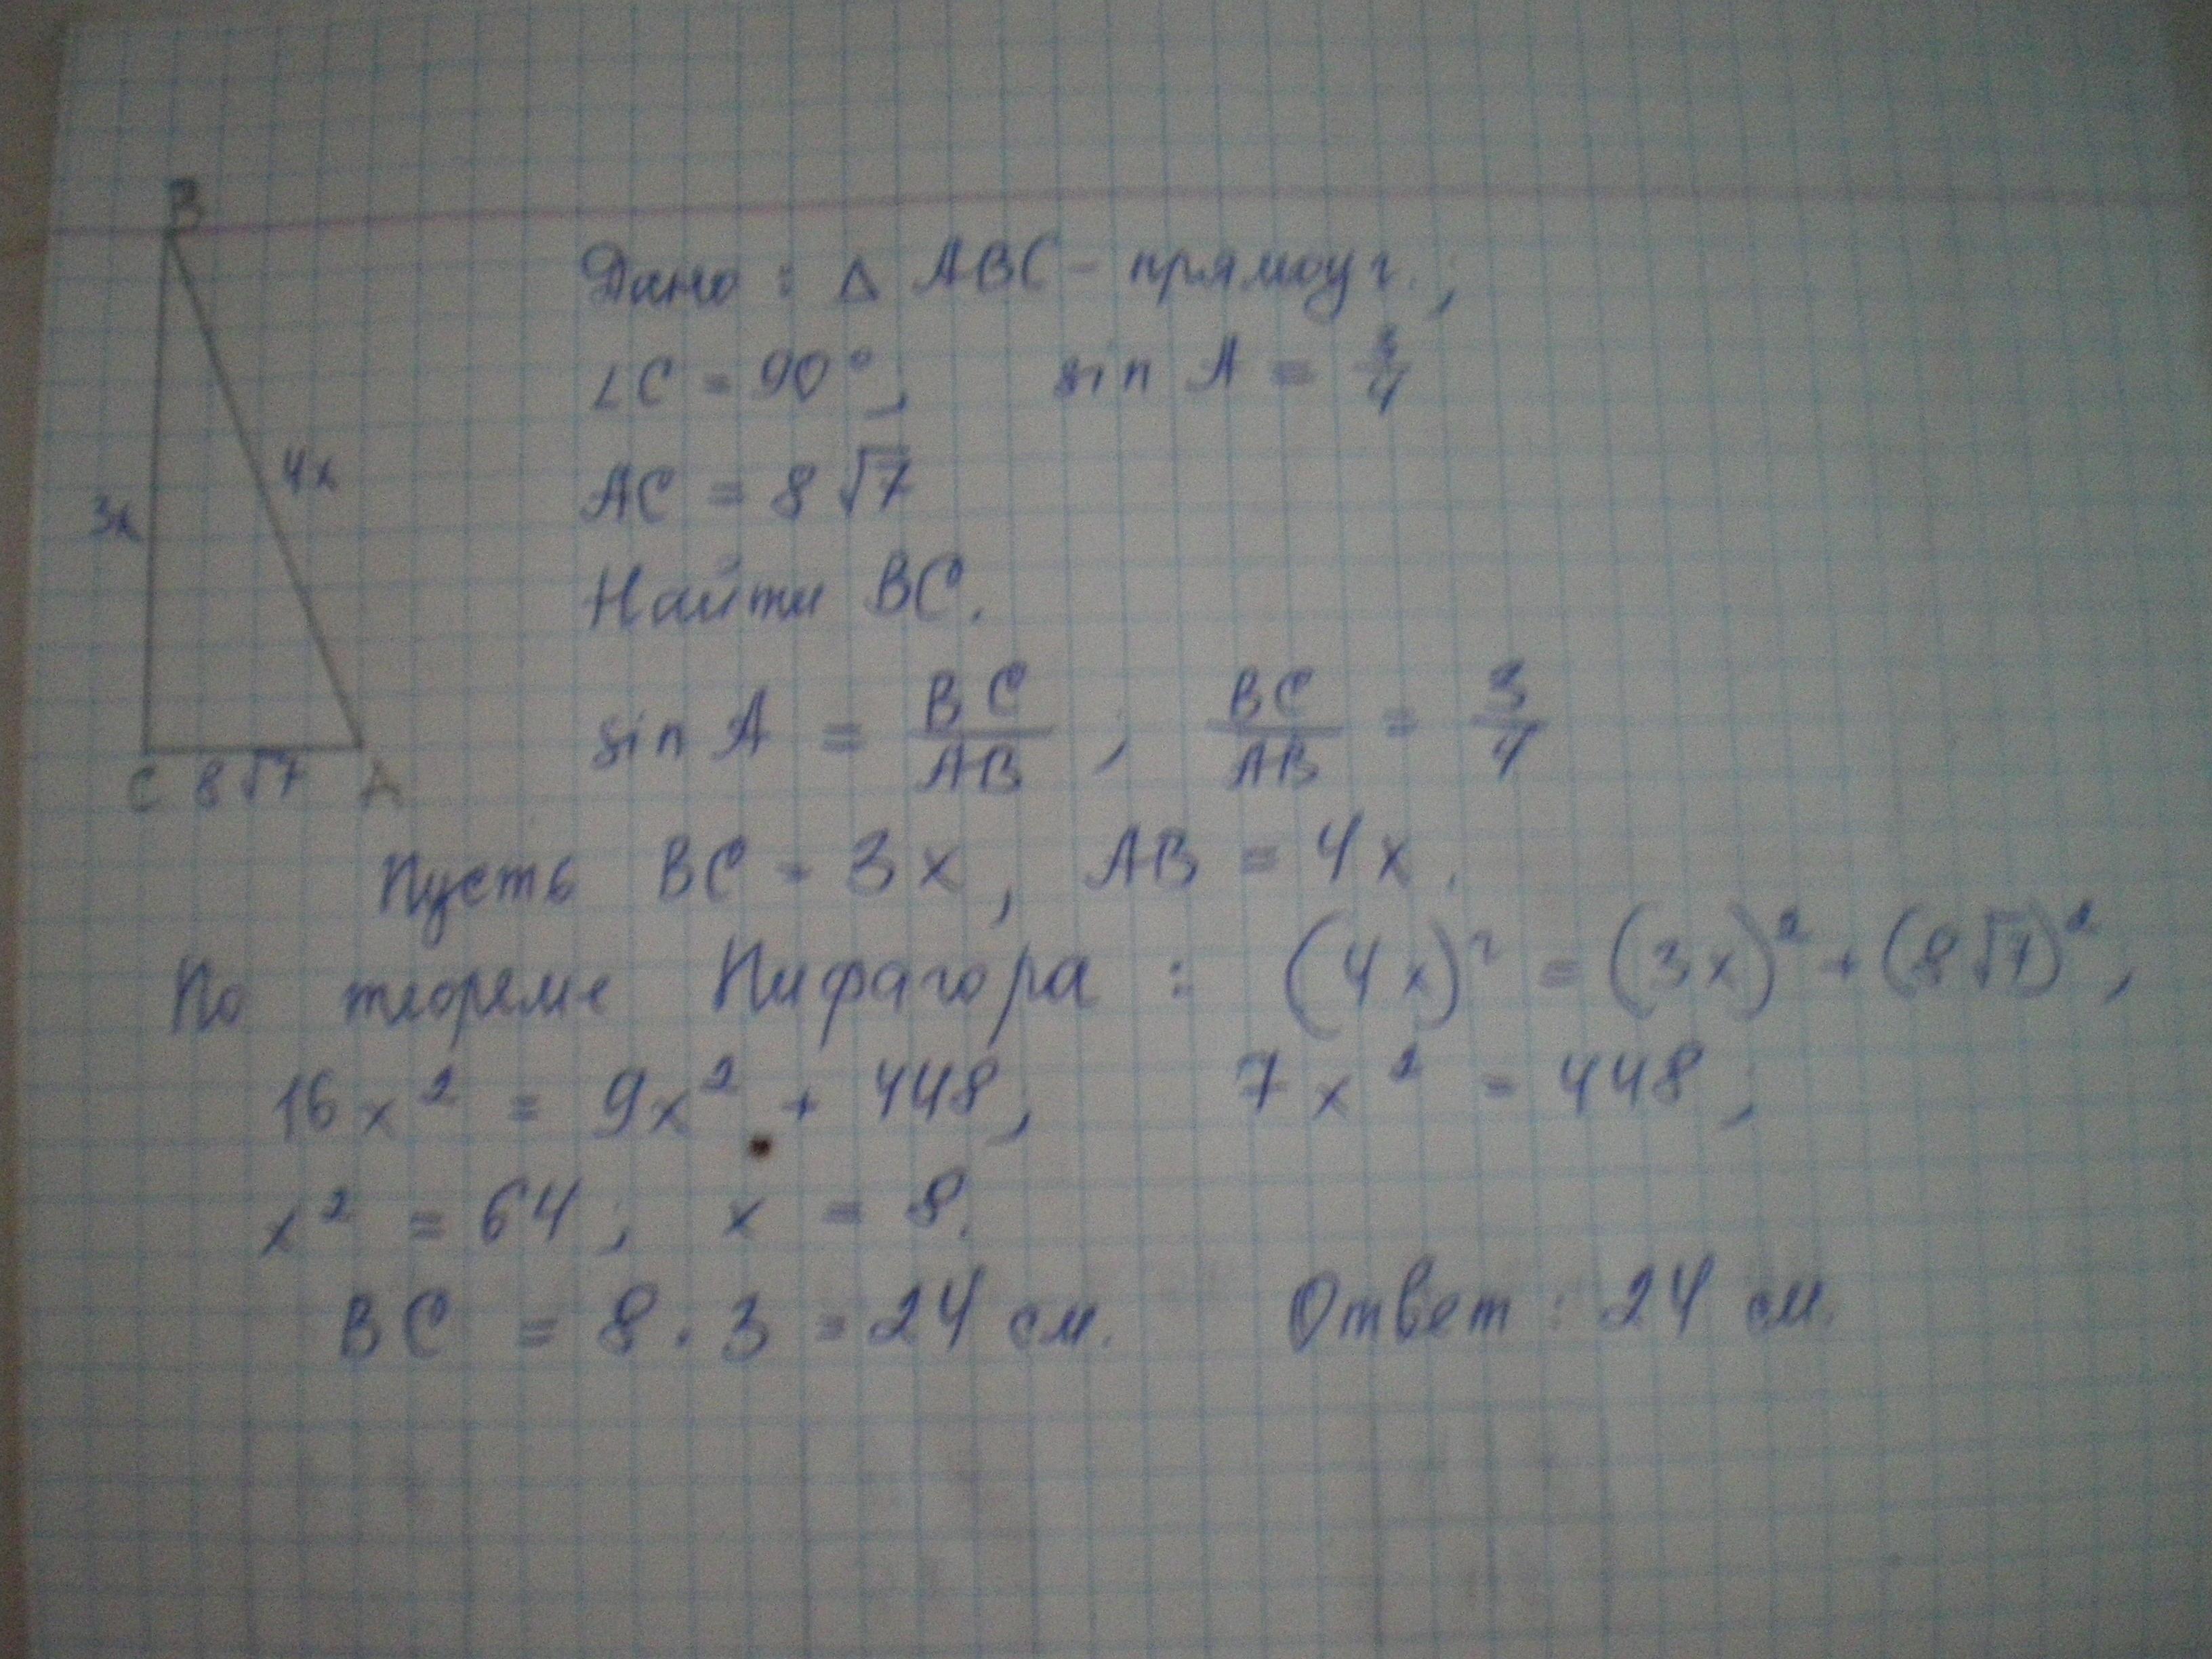 B
Дано: Δ ABC - прямоуг.;
∠C = 90°, sin A = 3/4
4x
3x
AC = 8√7
Найти BC.
sin A = BC/AB; BC/AB = 3/4
C 8√7 A
Пусть BC = 3x, AB = 4x.
По теореме Пифагора: (4x)² = (3x)² + (8√7)²,
16x² = 9x² + 448, 7x² = 448;
x² = 64; x = 8.
BC = 8 · 3 = 24 см. Ответ: 24 см.